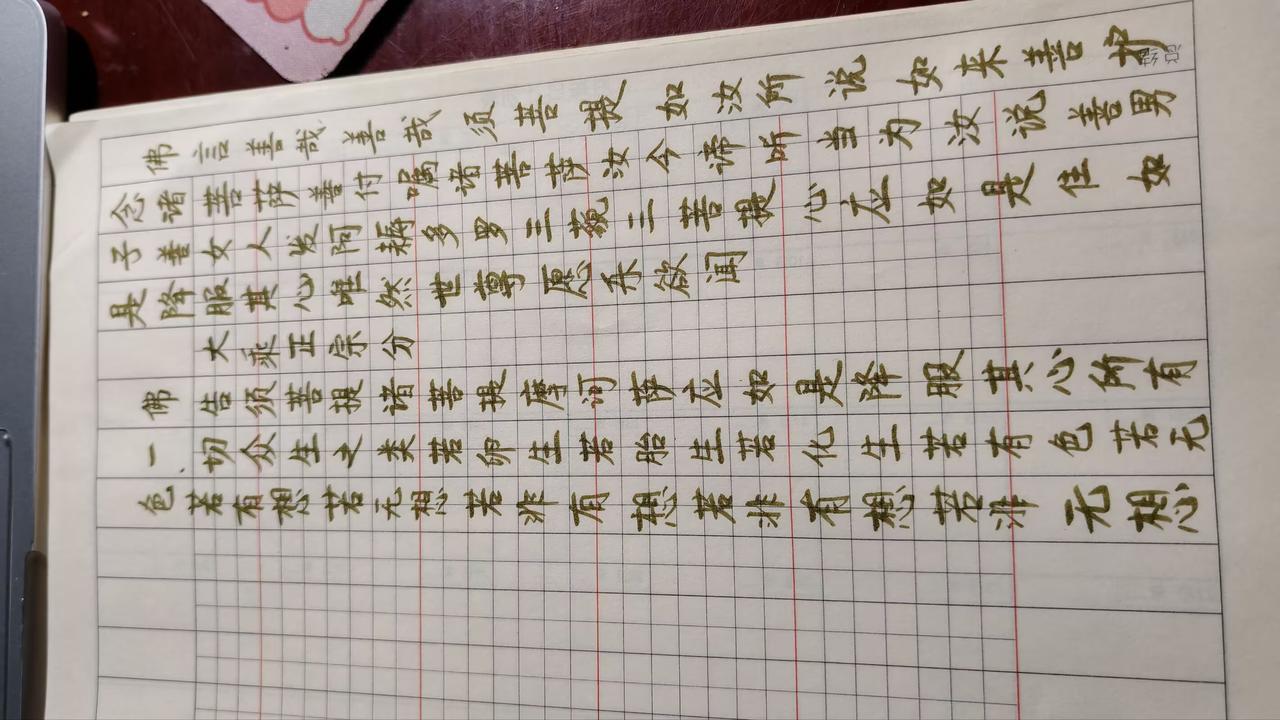 佛言善哉善哉须菩提如汝所说如来善护
念诸菩萨善付嘱诸菩萨汝今谛听当为汝说善男
子善女人发阿耨多罗三藐三菩提心应如是住如
是降服其心唯然世尊愿乐欲闻
大乘正宗分
佛告须菩提诸菩提摩诃萨应如是降服其心所有
一切众生之类若卵生若胎生若化生若有色若无
色若有想若无想若非有想若非有想若非无想